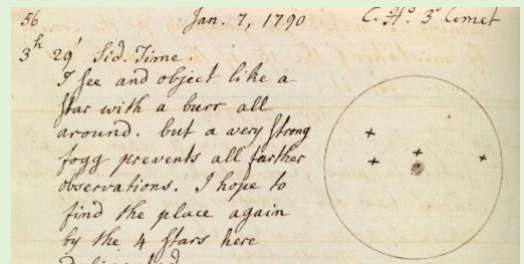 56 Jan. 7, 1790 C. H.s 3d Comet
3h 29' Sid. Time.
I see and object like a
star with a burr all
around. but a very strong
fogg prevents all further
observations. I hope to
find the place again
by the 4 stars here